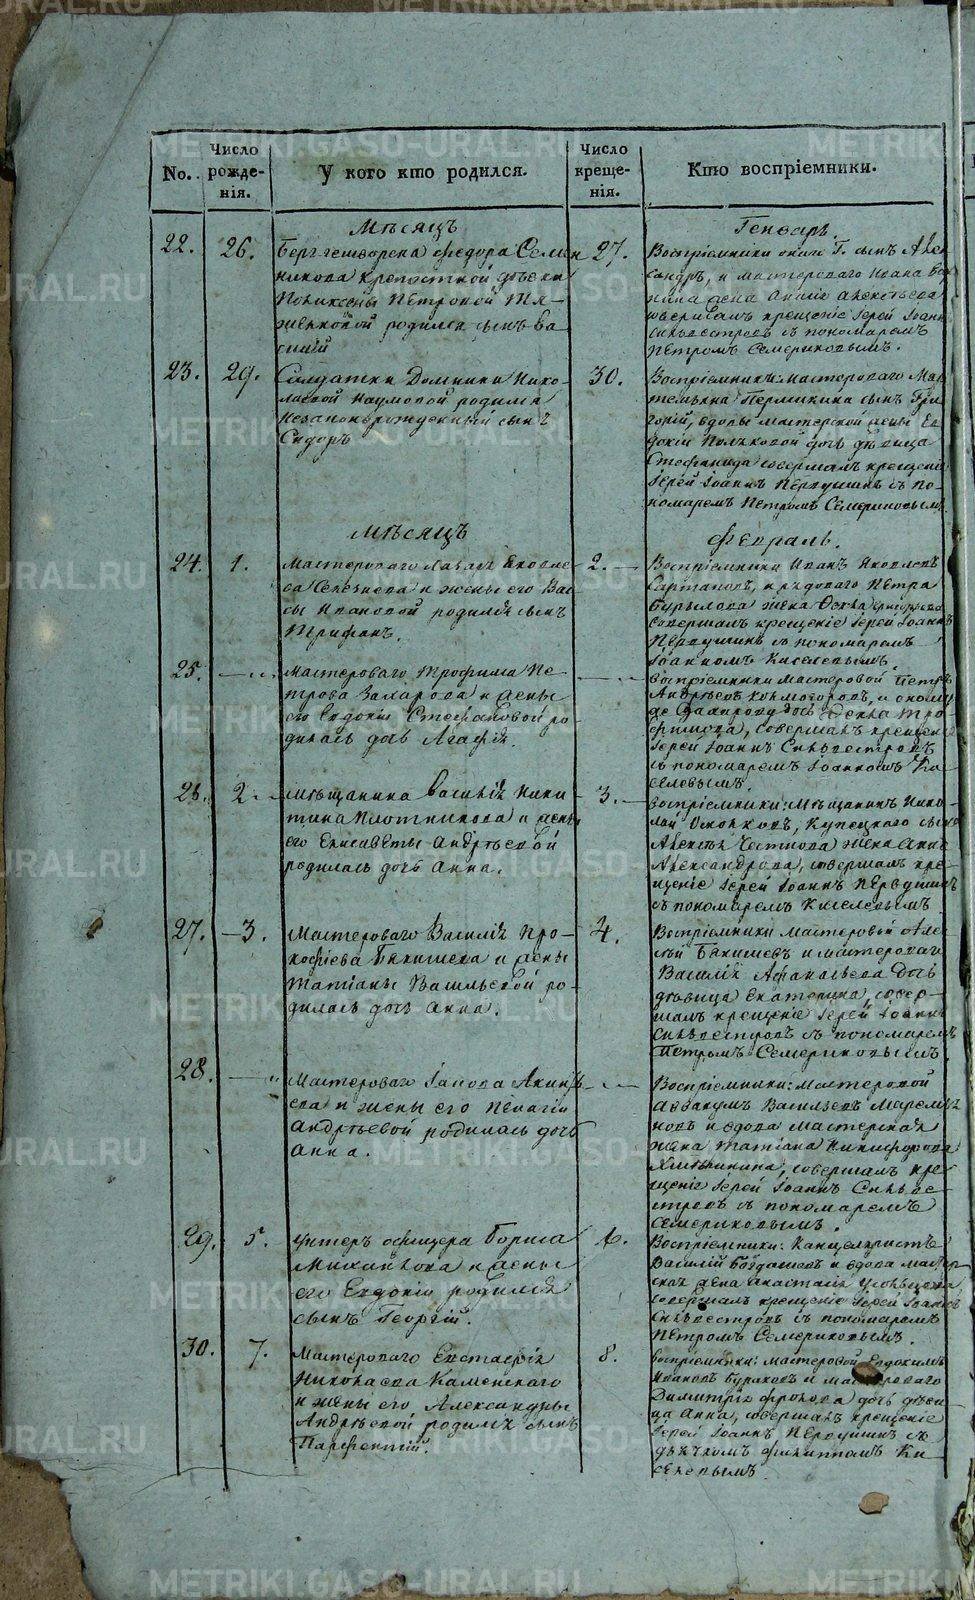 No.
Число рожде-
нія.
У кого кто родился.
Число креще-
нія.
Кто воспріемники.
Мѣсяцъ
Генварь.
22.
26.
Берггешворена Федора Семен
никова крепостной дѣвки
Поликсены Петровой
родился сынъ Ва
силій
27.
Воспріемники онаго Г. сынъ Алек
сандръ, и мастероваго Ивана
жена Алексѣева
совершалъ крещеніе Іерей Іоаннъ
Сильвестровъ съ пономаремъ
Петромъ Семериковымъ.
23.
29.
Солдатки Домники Нико-
лаевой Наумовой родился
незаконнорожденный сынъ
Сидоръ
30.
Воспріемники: мастероваго
Пермикина сынъ Гри
горій, вдовы мастерской жены Ев
докіи дочь дѣвица
Стефанида совершалъ крещеніе
Іерей Іоаннъ Первушинъ съ по-
номаремъ Петромъ Семериковымъ
Мѣсяцъ
Февраль.
24.
1.
Мастероваго Яковле
ва Селезнева и жены его Вас
сы Ивановой родился сынъ
Трифонъ.
2.
Воспріемники Иванъ Яковлевъ
и рядоваго Петра
жена
совершалъ крещеніе Іерей Іоаннъ
Первушинъ съ пономаремъ
Іоанномъ Киселевымъ.
25.
Мастероваго Трофима Пе
трова Захарова и жены
его Евдокіи Стефановой ро
дилась дочь Агафія.
Воспріемники мастеровой Петръ
Андрѣевъ Колмогоровъ, и оному
же Захарову дочь Ѳекла Тро
фимова, совершалъ крещеніе
Іерей Іоаннъ Сильвестровъ
съ пономаремъ Іоанномъ Ки
селевымъ.
26.
2.
Мѣщанина Василія Ники
тина Плотникова и жены
его Елисаветы Андрѣевой
родилась дочь Анна.
3.
Воспріемники: Мѣщанинъ Нико-
лай Купецкаго сына
Алексѣя жена Анна
Александрова, совершалъ кре-
щеніе Іерей Іоаннъ Первушинъ
съ пономаремъ Киселевымъ.
27.
3.
Мастероваго Василія Про-
кофіева и жены
Татіаны Васильевой ро-
дилась дочь Анна.
4.
Воспріемники мастеровой Алек
сѣй и мастероваго
Василія Афанасьева дочь
дѣвица Екатерина, совер-
шалъ крещеніе Іерей Іоаннъ
Сильвестровъ съ пономаремъ
Петромъ Семериковымъ.
28.
Мастероваго Іакова Акинѳі-
ева и жены его Пелагіи
Андрѣевой родилась дочь
Анна.
Воспріемники: мастеровой
Аввакумъ Васильевъ
и вдова мастерская
жена Татіана Никифорова
совершалъ кре
щеніе Іерей Іоаннъ Сильве-
стровъ съ пономаремъ
Семериковымъ.
29.
5.
Унтеръ офицера Бориса
Михайлова и жены
его Евдокіи родился
сынъ Георгій.
6.
Воспріемники: Канцеляристъ
Василій Богдановъ и вдова мастер
ска жена Анастасія
совершалъ крещеніе Іерей Іоаннъ
Сильвестровъ съ пономаремъ
Петромъ Семериковымъ.
30.
7.
Мастероваго Евстафія
Николаева Каменскаго
и жены его Александры
Андрѣевой родился сынъ
Парфентій.
8.
Воспріемники: мастеровой Евдокимъ
Ивановъ Бураковъ и мастероваго
Димитрія Фролова дочь дѣви
ца Анна, совершалъ крещеніе
Іерей Іоаннъ Первушинъ съ
дьячкомъ Филиппомъ Ки
селевымъ.
METRIKI.GASO-URAL.RU